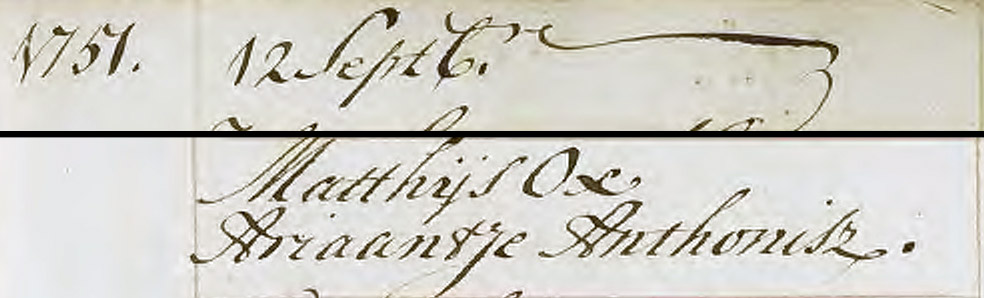 1751. 12 Septbre.
Matthijs Ox
Ariaantje Anthonisz.